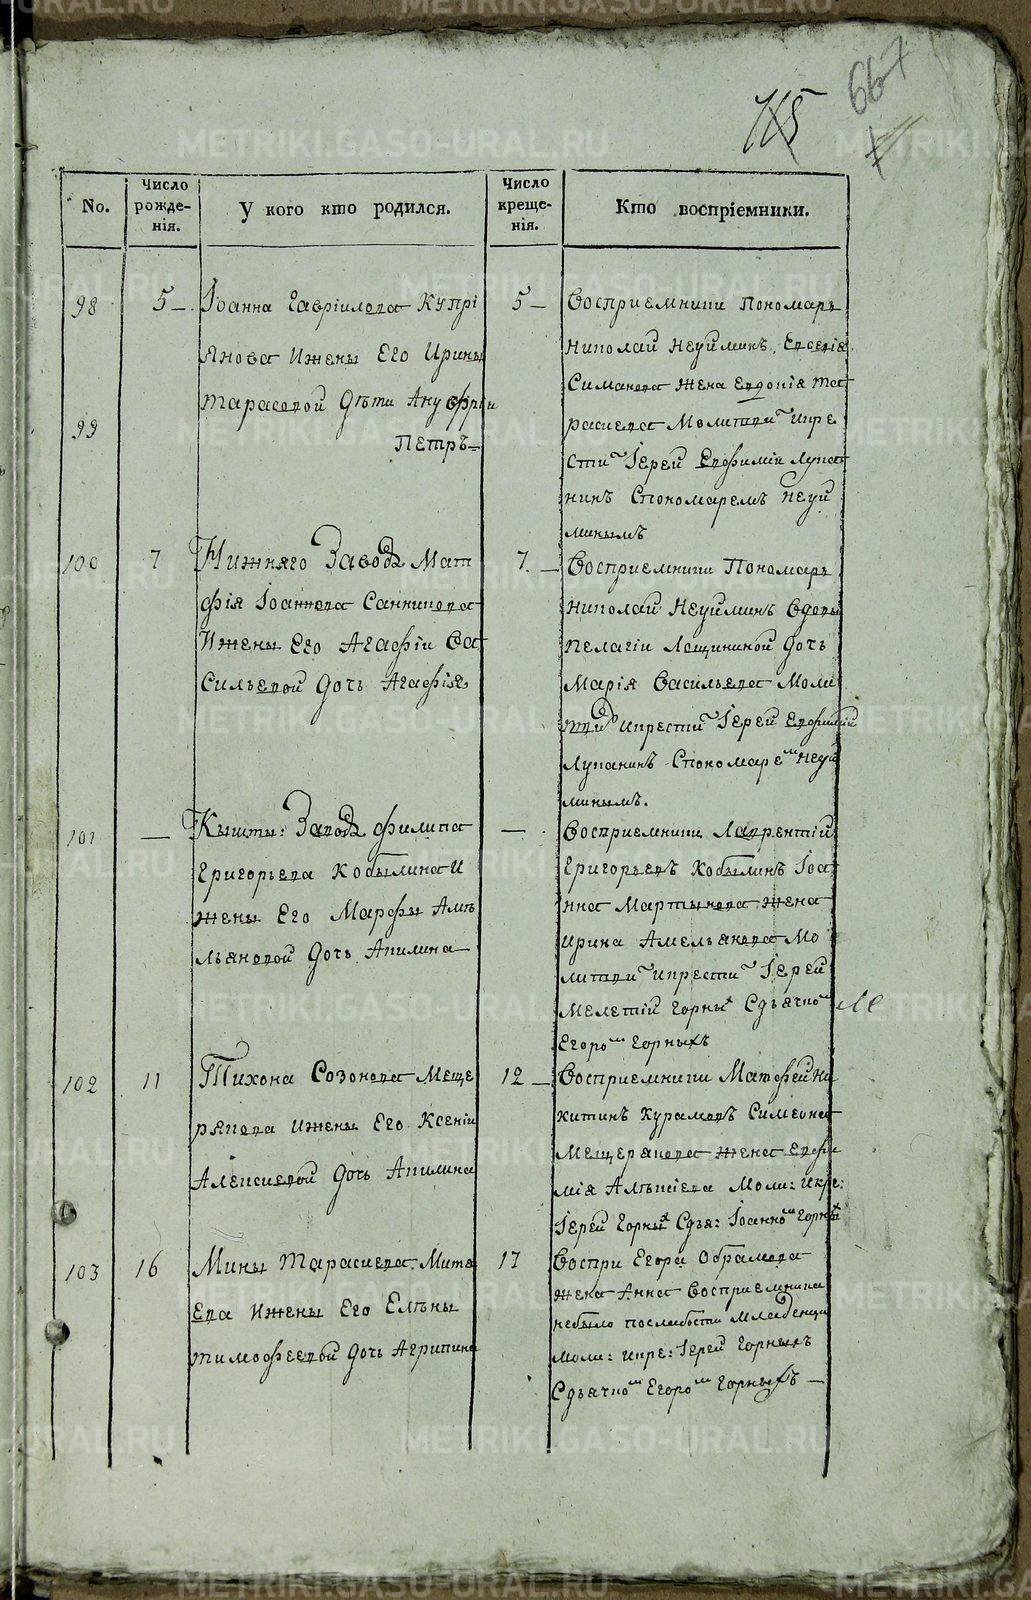 667
115
No.
Число рожде-нія.
У кого кто родился.
Число креще-нія.
Кто воспріемники.
98
5 —
Іоанна Гавріилова Купрі
янова Ижены Его Ирины
Тарасовой Дѣти Ануфріи
99
Петръ —
5 —
Восприемники Пономарь
Николай Неуйминъ,
Симанова Жена Евдокія Тара
расиева Молитвой Икре
стил Іерей Евфимій Лука
нинъ Спономаремъ Неуй
минымъ
100
7
Нижняго Завода Мат
фія Іоаннова Санникова
Ижены Его Агафіи Ва
сильевой Дочь Агафія
7. —
Восприемники Пономарь
Николай Неуйминъ Вдовы
Пелагіи Лощининой Дочь
Марія Васильева Моли
твил Икрестил Іерей Евфимій
Луканинъ Спономаремъ Неуй
минымъ.
101
—
Кышты: Завода Филипа
Григорьева Кобылина И
жены Его Марфы Амѣ
льяновой Дочь Акилина
—
Восприемники Лаврентій
Григорьевъ Кобылинъ Іоа
нна Мартынова Жена
Ирина Амельянова Мо
литвил Икрестил Іерей
Мелетій Горных Сдьячком
Егором Горныхъ
102
11
Тихона Созонова Меще
рякова Ижены Его Ксеніи
Алексиевой Дочь Акилина
12 —
Восприемники Матфей Ни
китинъ Курамовъ Симеона
Мещерякова Жена Евфи
мія Алѣксіева Моли: Икре:
Іерей Горных Сдья: Іоанном Горных
103
16
Мины Тарасиева Мита
ева Ижены Его Елѣны
Тимофеевой Дочь Агрипина
17
Воспри Егора Обрамова
Жена Анна Восприемника
небыло послабости младенца
Моли: Икре: Іерей Горныхъ
Сдьячком Егором Горныхъ —
METRIKI.GASO-URAL.RU